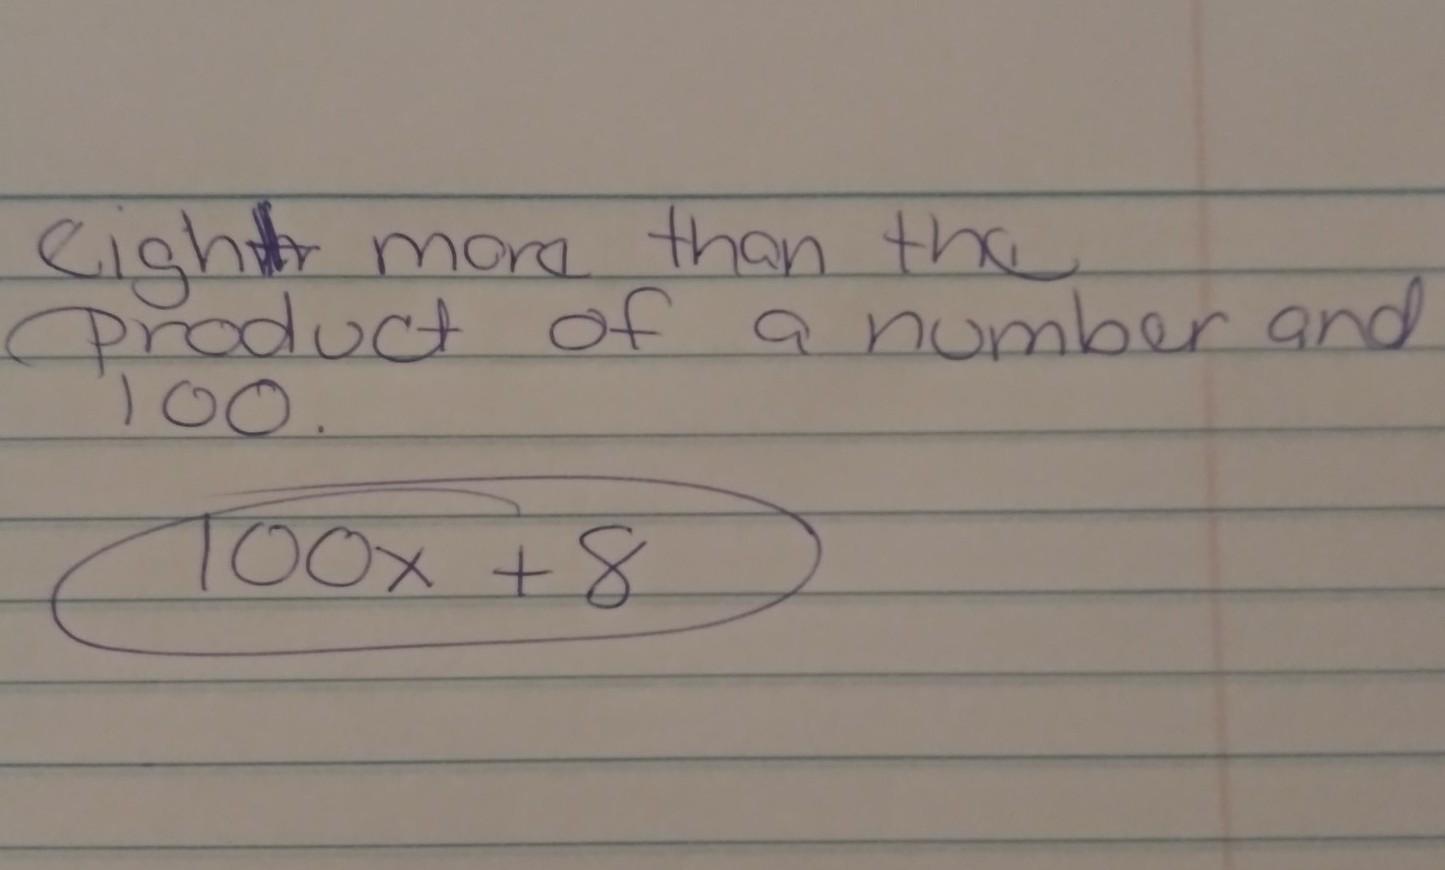 eight more than the
product of a number and
100.
100x + 8